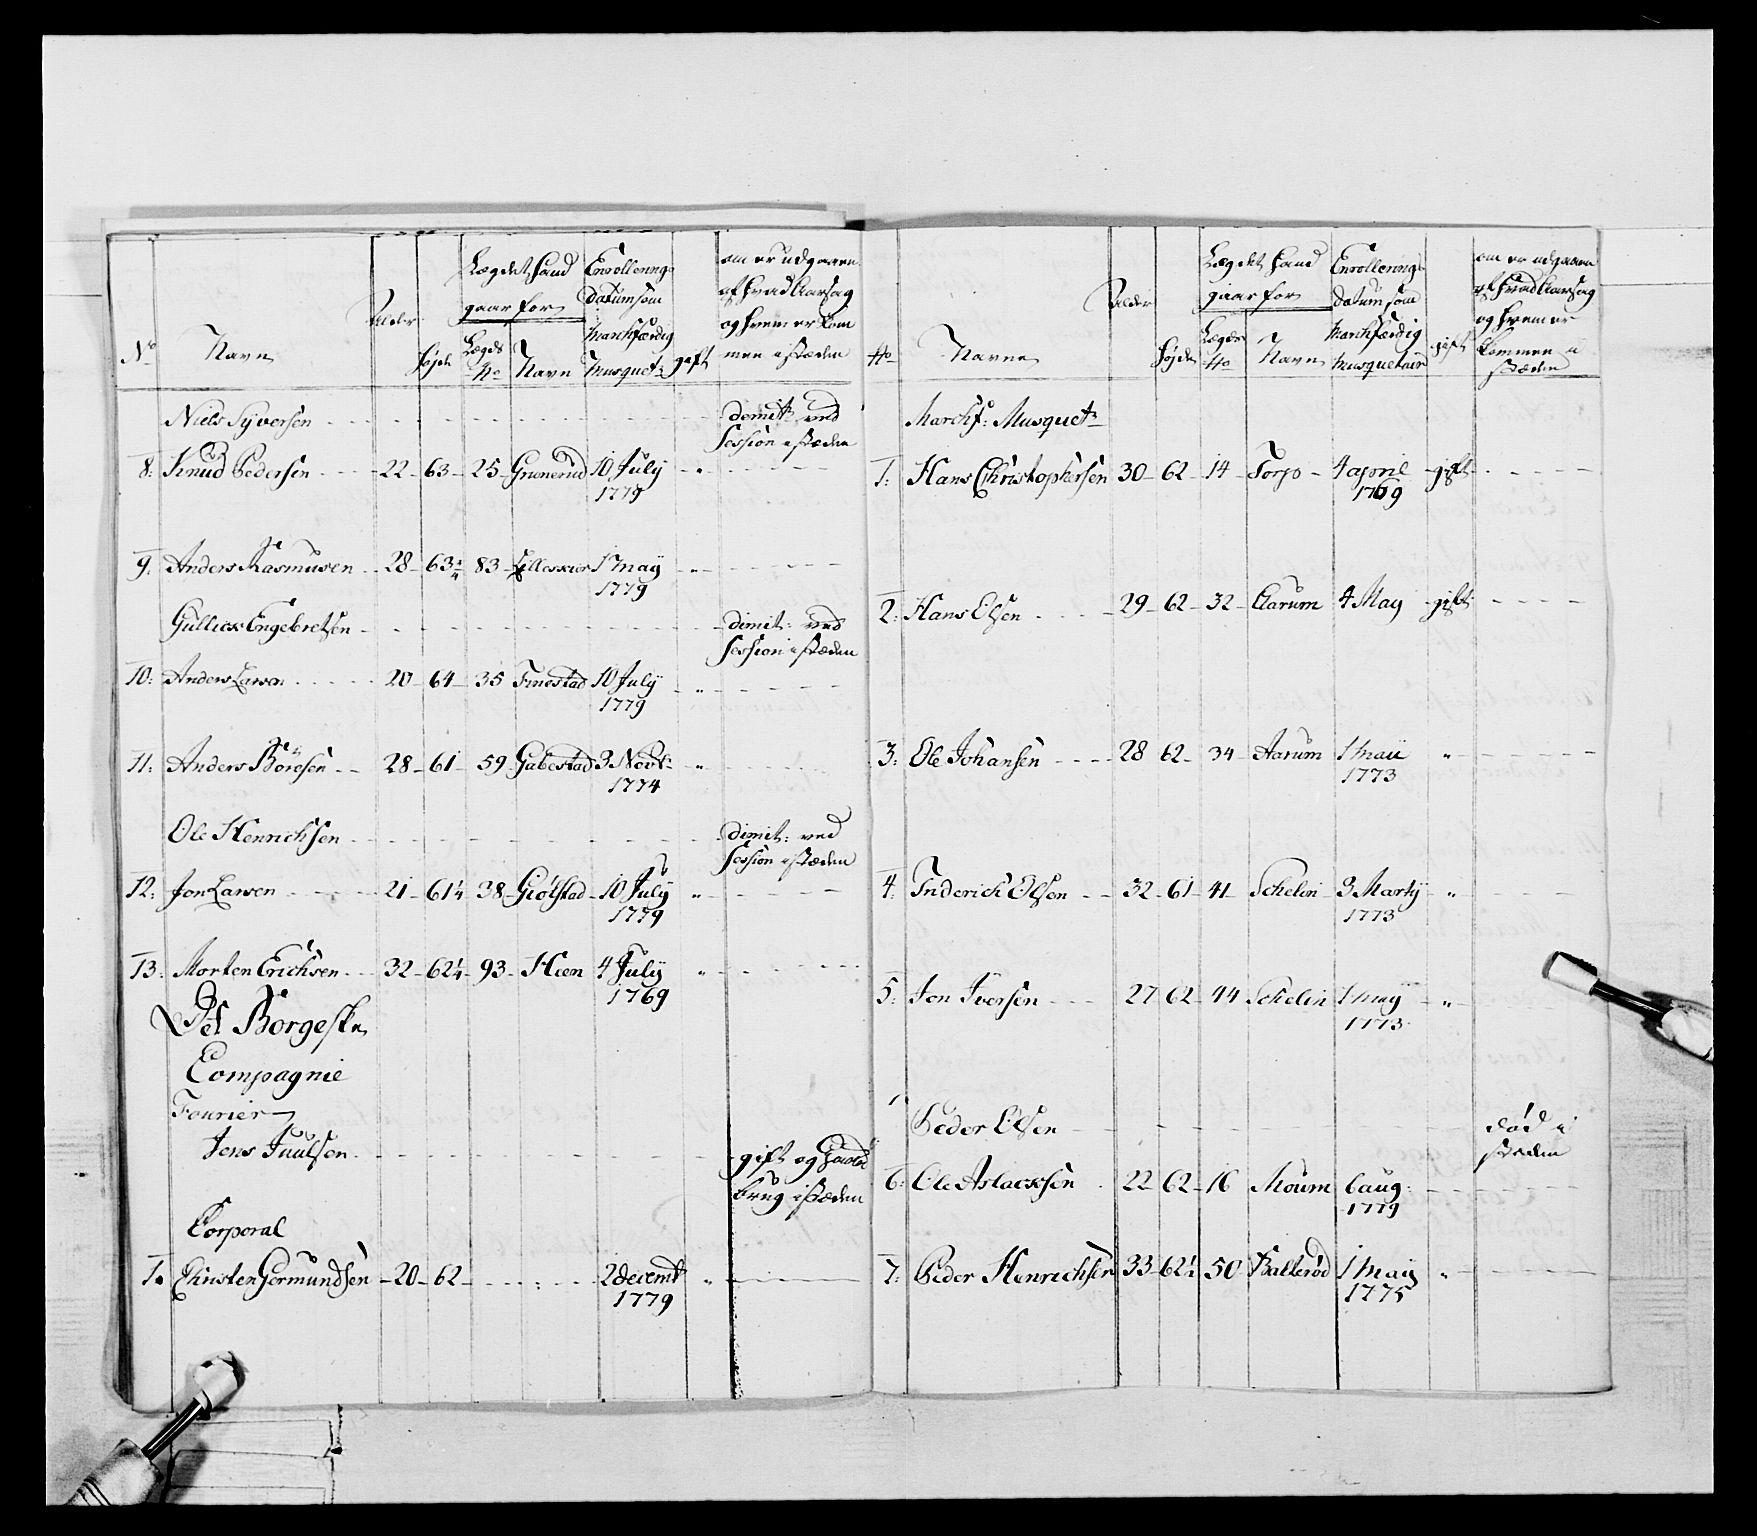 Lægdet hand
gaar for
Enrollerings
datum som
marchfærdig
Musquet:
om er udgaaen
af hvad Aarsag
og hvem er kom
men i stæden
No Navn Alder Højde Lægds No Navn gift
Niels Syversen demit: ved
Session i stæden
8: Knud Pedersen 22 63 25 Grønerud 10 July
1779
9: Anders Rasmusen 28 63 1/4 83 1 May
1779
Gullick Engebretsen dimit: ved
Session i stæden
10: Anders Larsen 20 64 35 Finestad 10 July
1779
11: Anders Böresen 28 61 59 Gabestad 3 Novb:
1774
Ole Henrichsen dimit: ved
Session i stæden
12: Jon Larsen 21 61 1/4 38 Giølstad 10 July
1779
13: Morten Erichsen 32 62 1/4 93 Hien 4 July
1769
Det Borgeske
Compagnie
Fourier
Jens Juulsen gift og
brug i stæden
Corporal
1. Christen Gormundsen 20 62 2 decemb
1779
Lægdet hand
gaar for
Enrollerings
datum som
marchfærdig
Musquetair
om er udgaaen
af hvad Aarsag
og hvem er
kommen i
stæden
No Navn Alder Højde Lægds No Navn gift
Marchf: Musquet:
1: Hans Christophersen 30 62 14 Torp 4 april gift
1769
2: Hans Olsen 29 62 32 Aarum 4 May gift
3: Ole Johansen 28 62 34 Aarum 1 Maii
1773
4: Friderich Olsen 32 61 41 Schelin 3 Marty
1773
5: Jon Iversen 27 62 44 Schelin 1 May
1773
Peder Olsen død i
stæden
6: Ole Aslacksen 22 62 16 Moum 6 aug:
1779
7: Peder Henrichsen 33 62 1/2 50 Balterød 1 May
1775